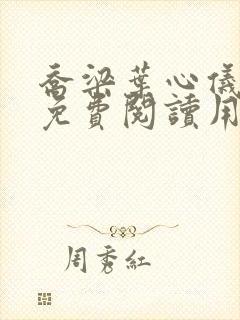 喬梁葉心儀
免費閱讀用
周秀紅